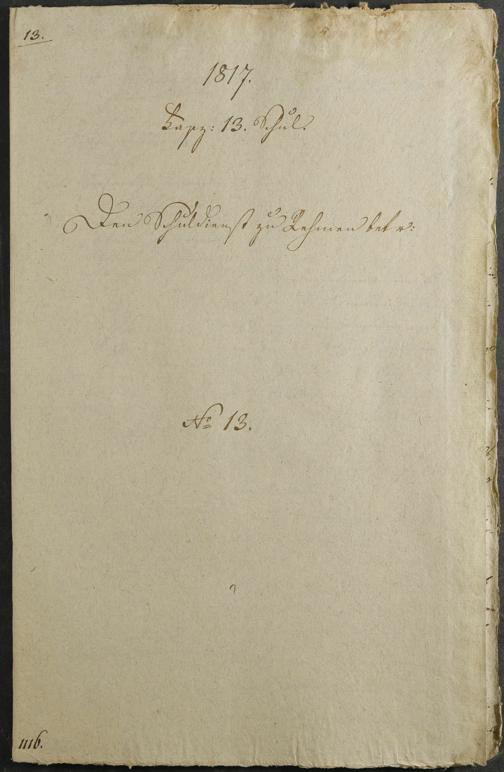 13.
1817.
Kapz: 13. Schul.
Den Schuldienst zu Rehmen betr:
No 13.
1116.